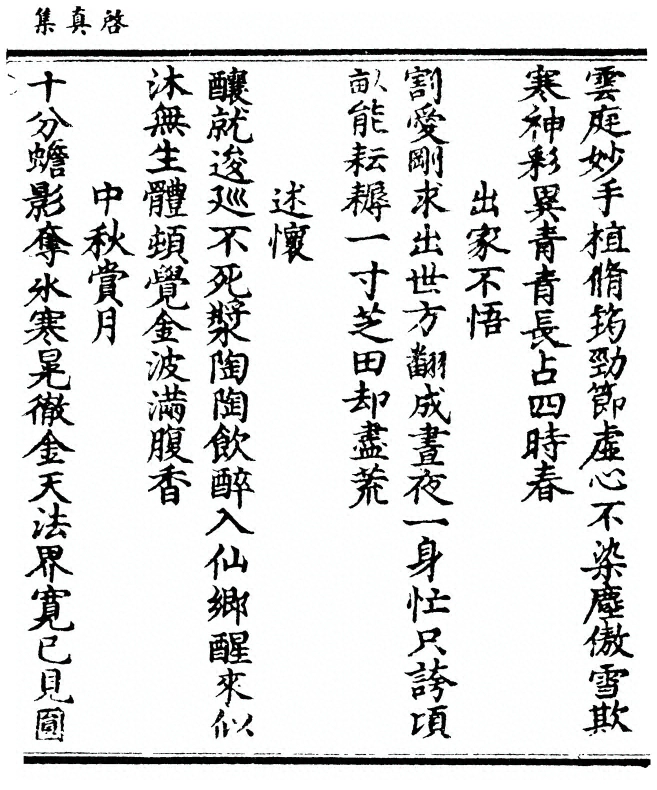 啓真集
雲庭妙手植脩筠勁節虛心不染塵傲雪欺
寒神彩異青青長占四時春
出家不悟
割愛剛求出世方翻成晝夜一身忙只誇頃
畝能耘耨一寸芝田却盡荒
述懷
釀就逡巡不死漿陶陶飲醉入仙鄉醒來似
沐無生體頓覺金波滿腹香
中秋賞月
十分蟾影奪氷寒晃徹金天法界寬已見圓